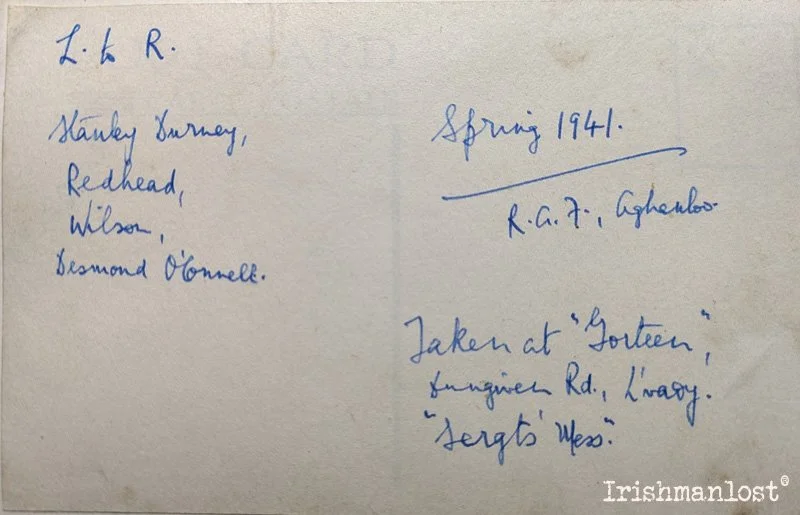 L. to R.
Stanley Durney,
Redhead,
Wilson,
Desmond O'Connell.
Spring 1941.
R.A.F., Aghanloo
Taken at "Gorteen",
Dungiven Rd., L'vady.
"Sergts' Mess".
Irishmanlost®